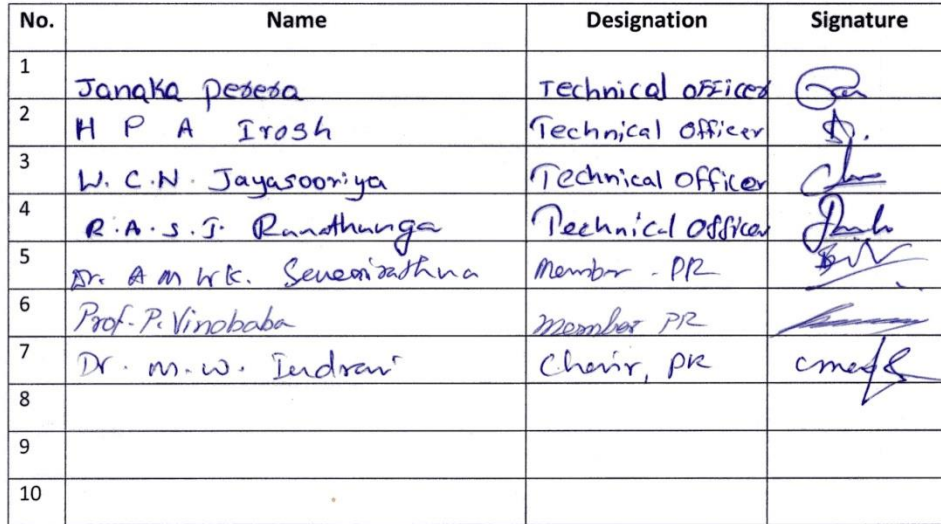 No. Name Designation Signature
1 Janaka Perera Technical officer
2 H P A Irosh Technical officer
3 W. C. N. Jayasooriya Technical officer
4 R. A. S. J. Ranathunga Technical officer
5 Dr. A M W K. Senevirathna Member - PR
6 Prof. P. Vinobaba Member PR
7 Dr. M. W. Indrani Chair, PR
8
9
10